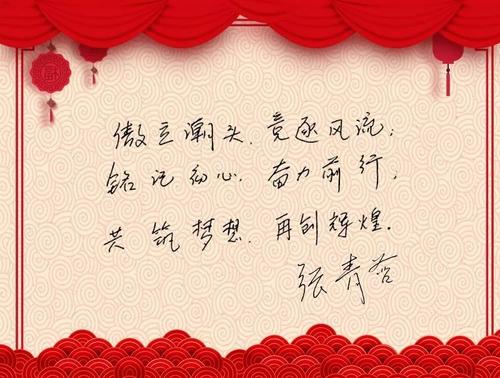 傲立潮头、竞逐风流;
铭记初心、奋力前行,
共筑梦想、再创辉煌.
张青谷